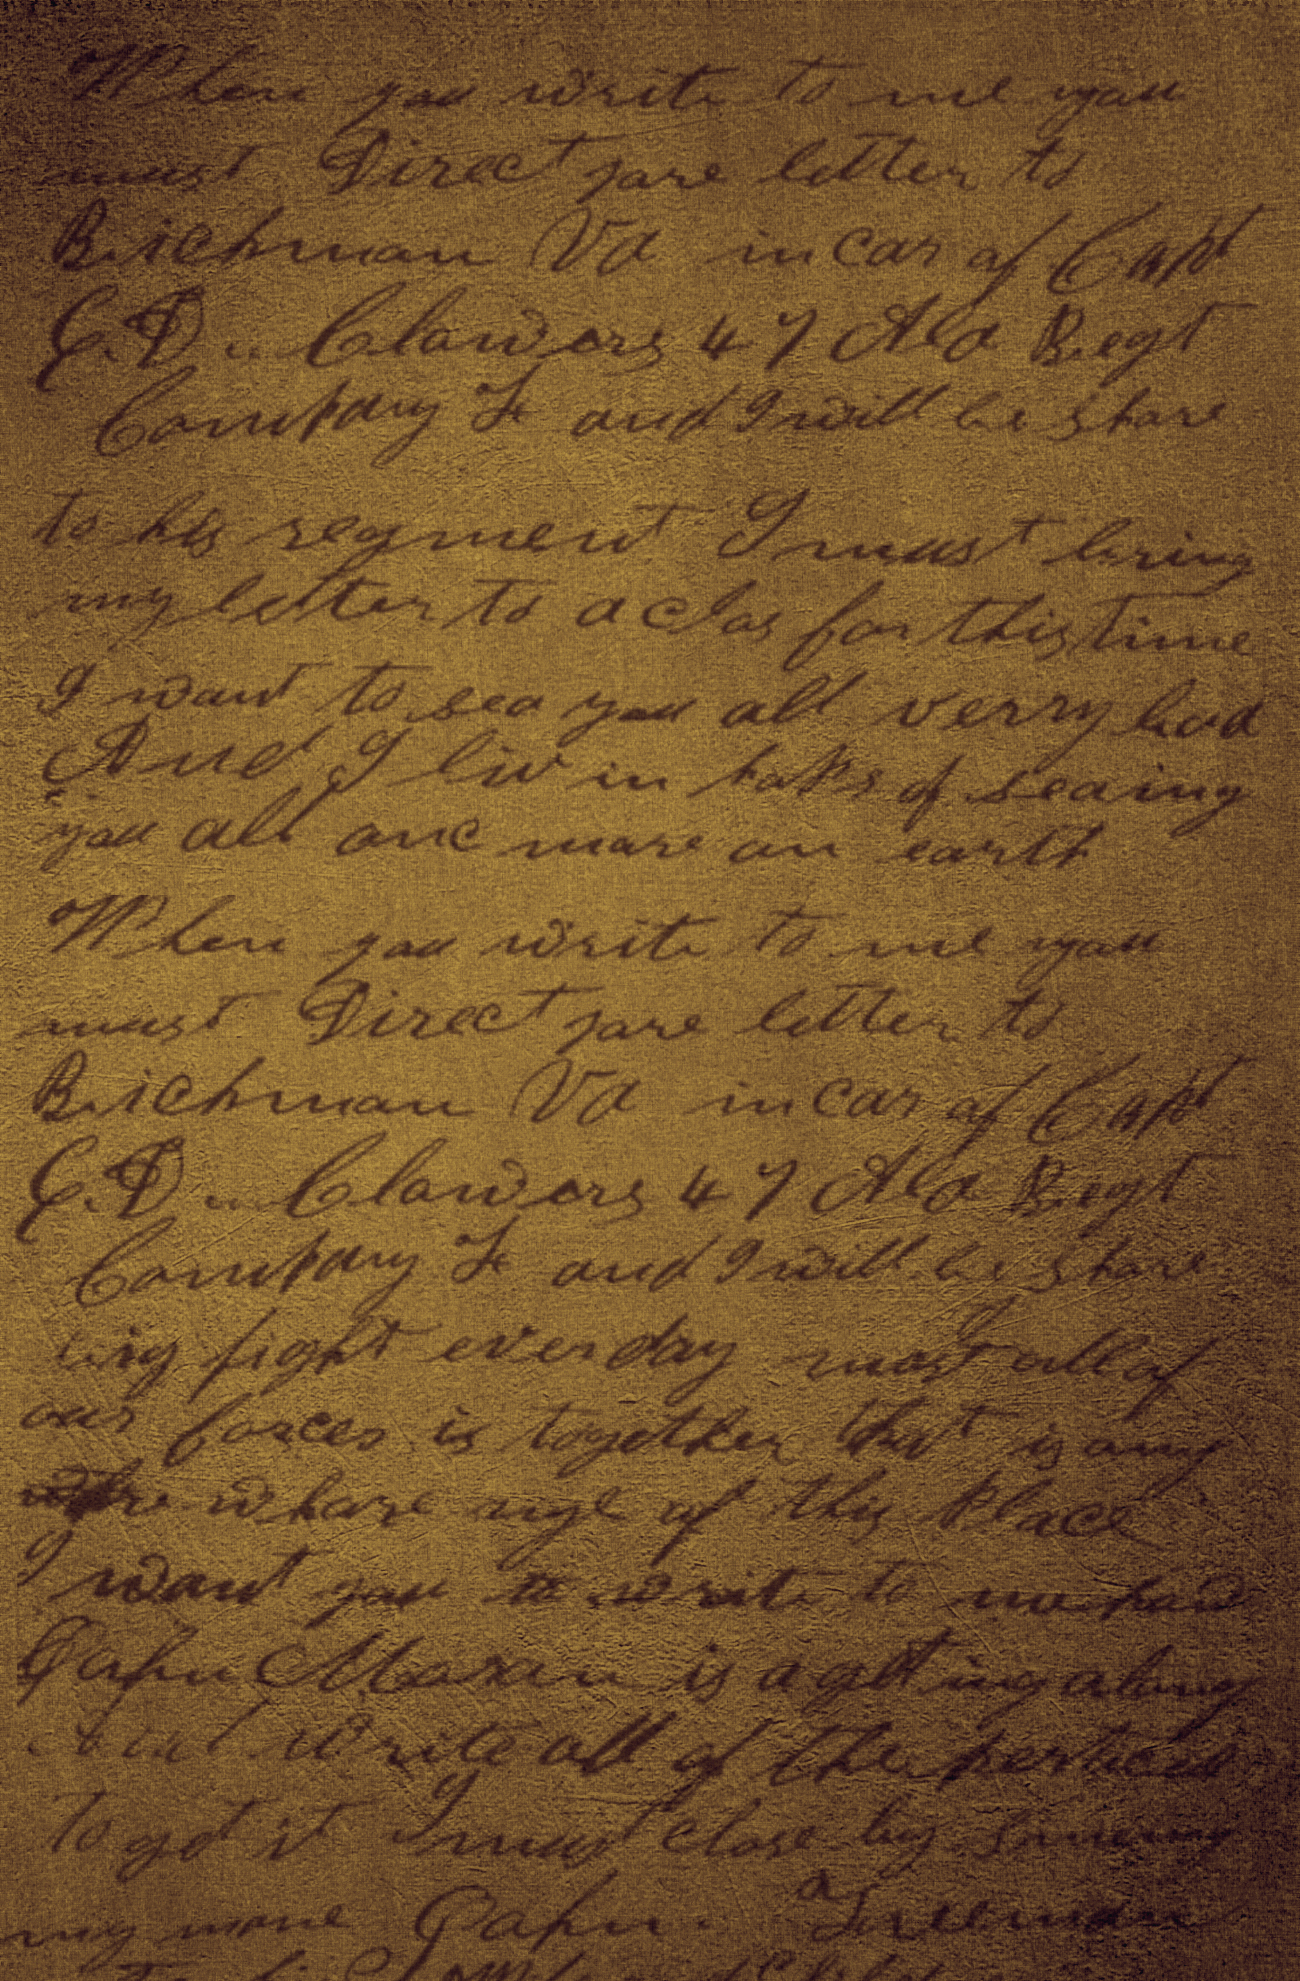 When you write to me you
must Direct yore letter to
Richman Va in car of Capt
C.D. Clawers 47 Ala Regt
Company F and I will be shore
to his regment I must bring
my letter to a clos for this time
I want to sea you all verry bad
And I liv in hops of seaing
you all onc more on earth
When you write to me you
must Direct yore letter to
Richman Va in car of Capt
C.D. Clawers 47 Ala Regt
Company F and I will be shore
fight everday most all of
our forces is together that is any
whare nye of this place
I want you to write to me how
Papu is a getting along
write all of the
to get it I must close by
my more Papu. Freeman